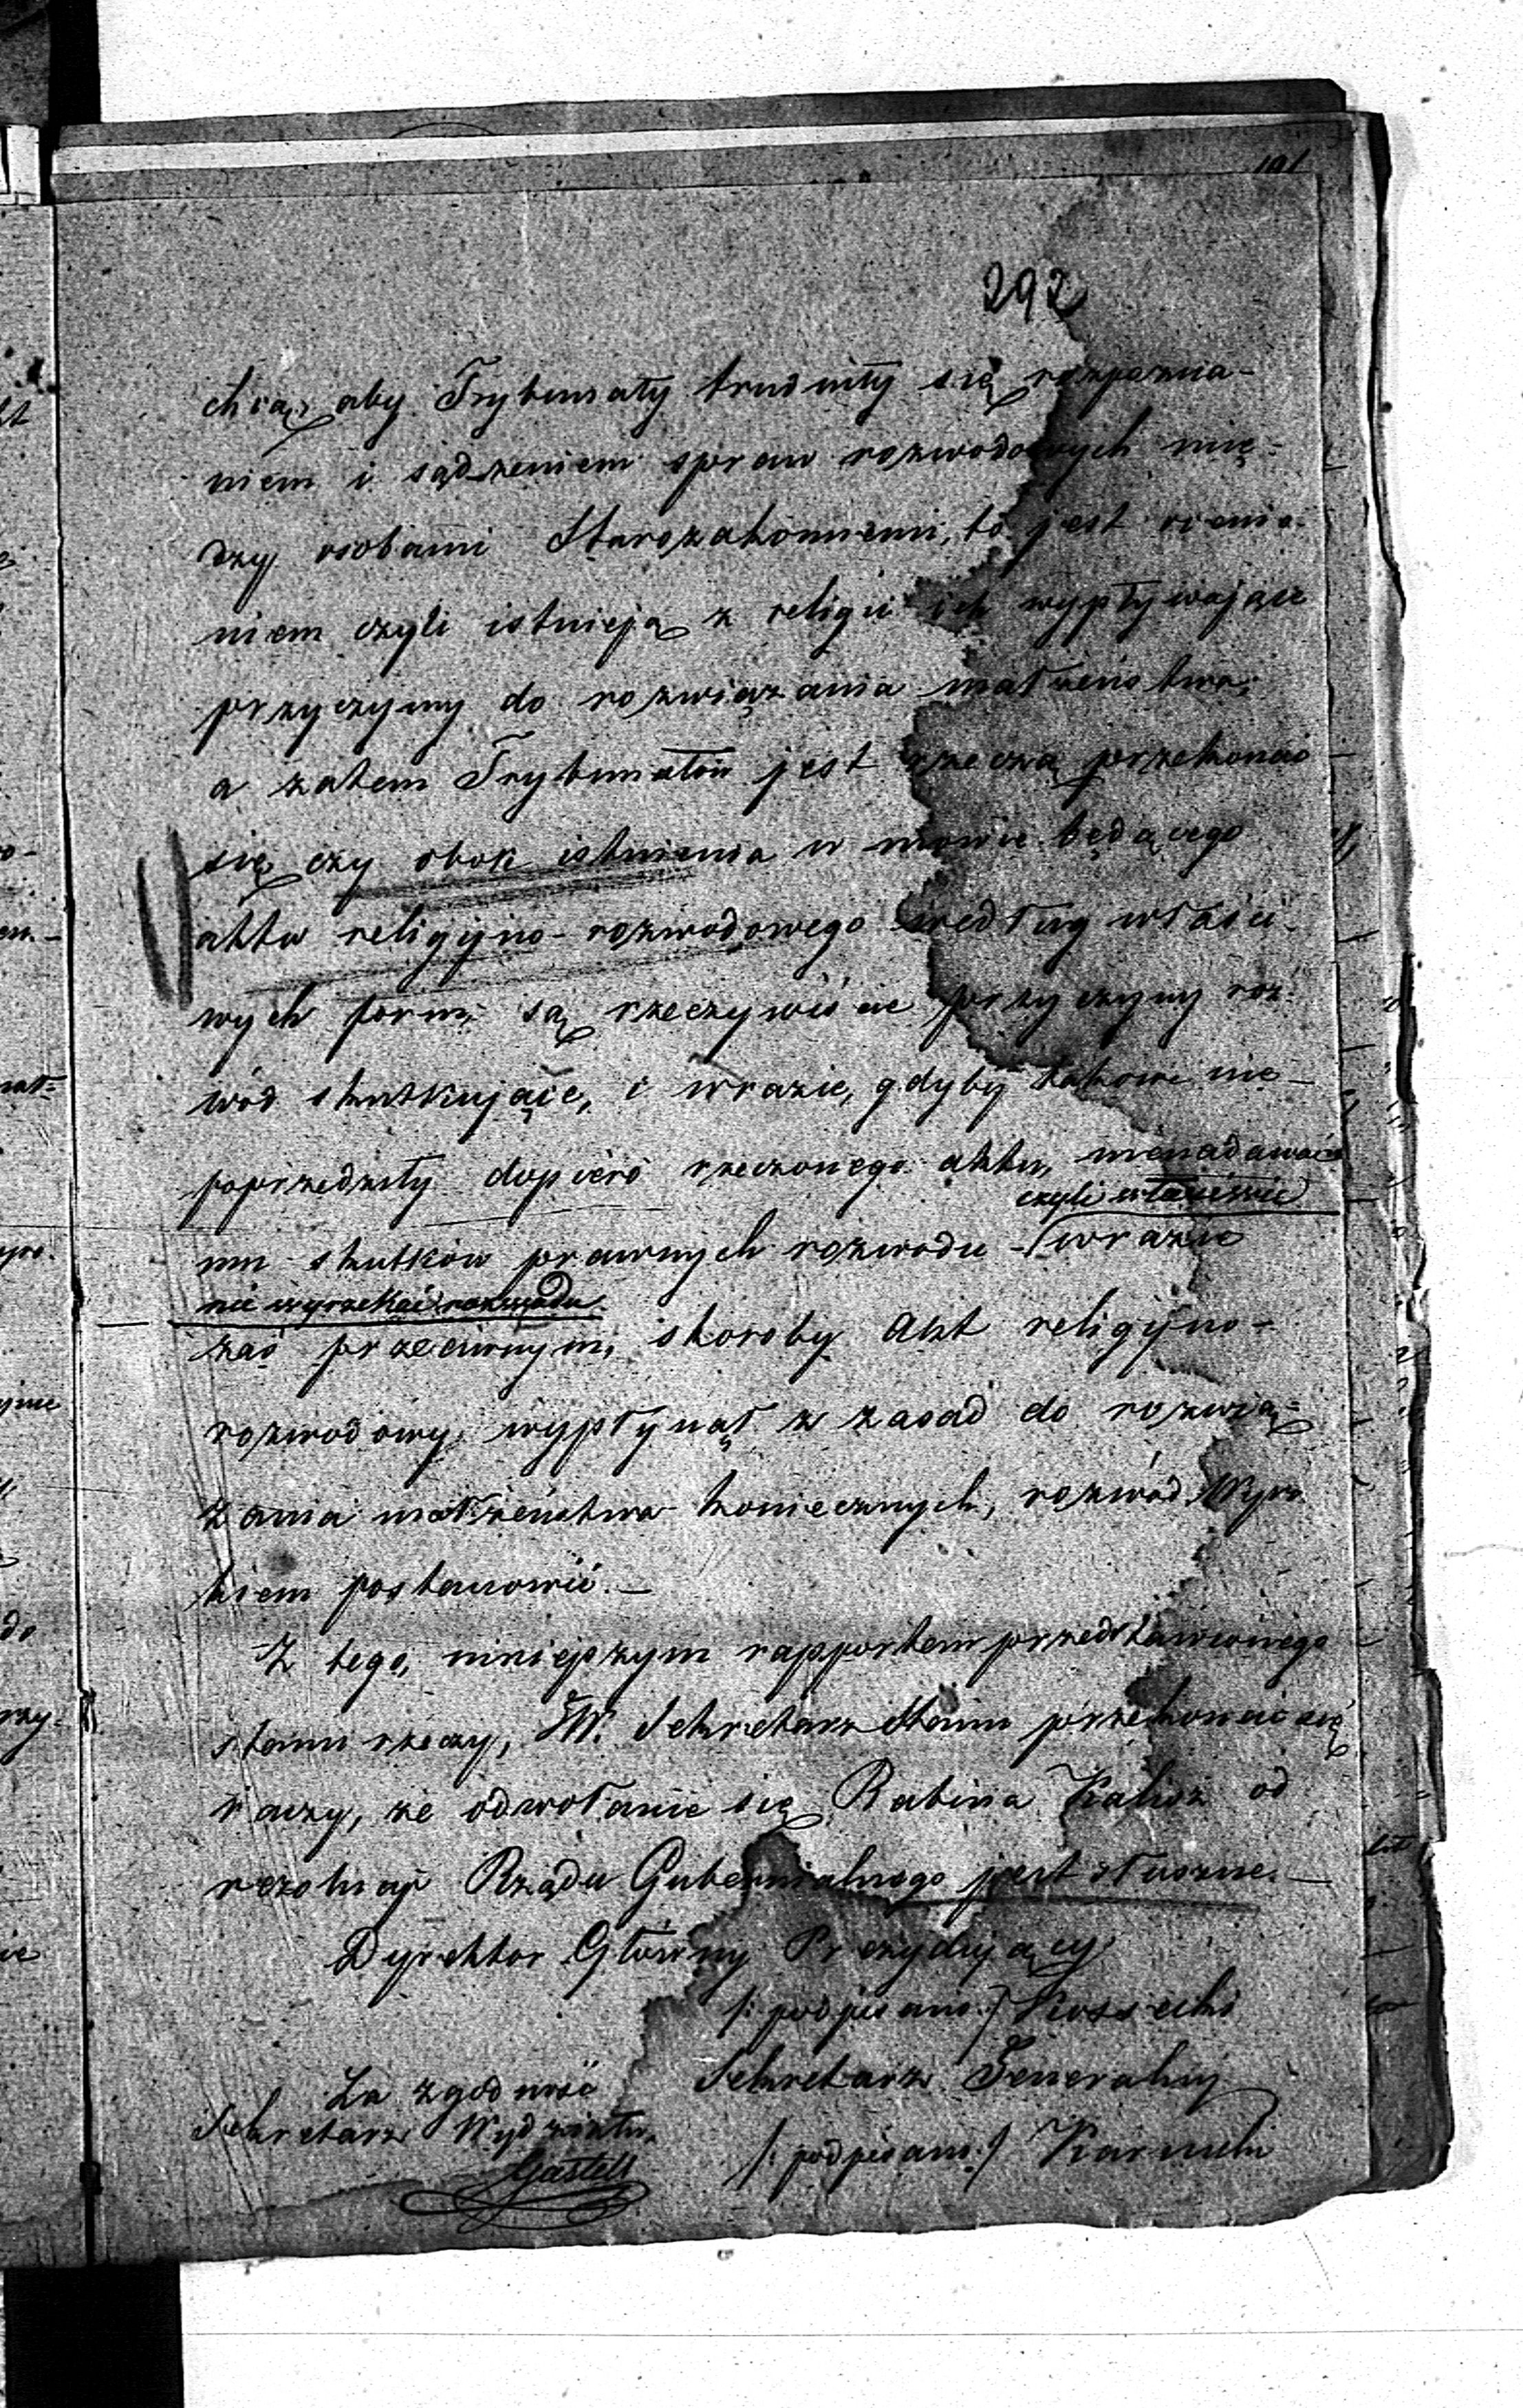 292
chcą, aby Trybunały trudniły się rozpozna-
niem i sądzeniem spraw rozwodowych mię-
dzy osobami Starozakonnemi, to jest ocenie-
niem czyli istnieją z religii ich wypływające
przyczyny do rozwiązania małżeństwa;
a zatem Trybunałów jest rzeczą przekonać
się, czy obok istnienia w mowie będącego
aktu religijno-rozwodowego według właści-
wych form, są rzeczywiście przyczyny roz-
wód skutkujące, i wrazie, gdyby takowe nie-
poprzedziły dopiéro rzeczonego aktu, nienadawać
czyli właściwie
mu skutków prawnych rozwodu - wrazie
nie wyrzekać rozwodu
zaś przeciwnym, skoroby akt religijno-
rozwodowy, wypłynął z zasad do rozwią-
zania małżeństwa koniecznych, rozwód Wyro
kiem postanowić.—
Z tego, niniejszym rapportem przedstawionego
stanu rzeczy, JW. Sekretarz Stanu przekonać się
raczy, że odwołanie się Rabina Kalisz od
rezolucji Rządu Gubernialnego jest słuszne.—
Dyrektor Główny Prezydujący
/: podpisano :/ Kossecki
Za zgodność
Sekretarz Wydziału
Gastell
Sekretarz Generalny
/: podpisano :/ Karnicki